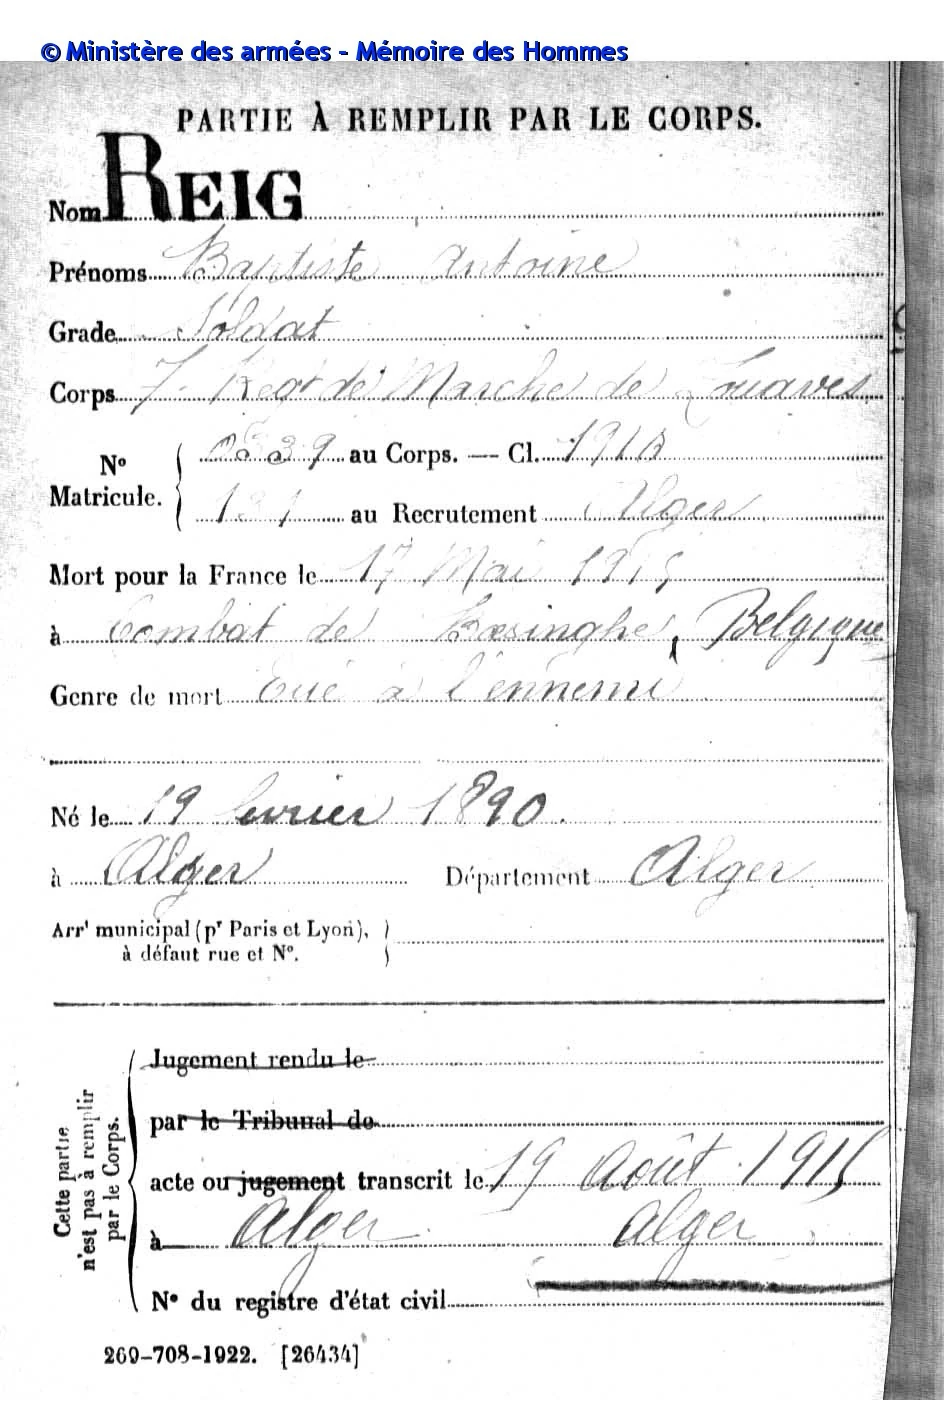 © Ministère des armées - Mémoire des Hommes
PARTIE À REMPLIR PAR LE CORPS.
Nom REIG
Prénoms Baptiste Antoine
Grade Soldat
Corps 7e Regt de Marche de Zouaves
No Matricule. au Corps. — Cl. 1910
au Recrutement Alger
Mort pour la France le 17 Mai 1915
à Combat de Bœsinghe, Belgique
Genre de mort Tué à l'ennemi
Né le 19 février 1890.
à Alger Département Alger
Arrt municipal (pr Paris et Lyon),
à défaut rue et No.
Cette partie n'est pas à remplir par le Corps.
Jugement rendu le
par le Tribunal de
acte ou jugement transcrit le 19 Août 1915
à Alger Alger
No du registre d'état civil
269-708-1922. [26434]